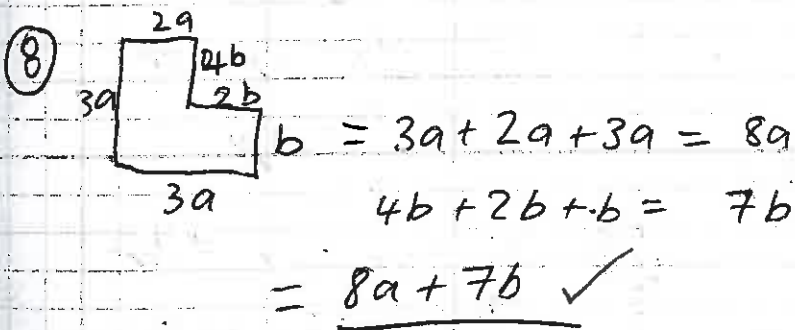 8
2a
4b
2b
3a
b = 3a + 2a + 3a = 8a
3a
4b + 2b + b = 7b
= 8a + 7b ✓